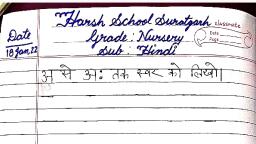 Harsh School Suratgarh
classmate
Date
Grade : Nursery
Date
Page
18 Jan, 22
Sub : Hindi
अ से अः तक स्वर को लिखो।